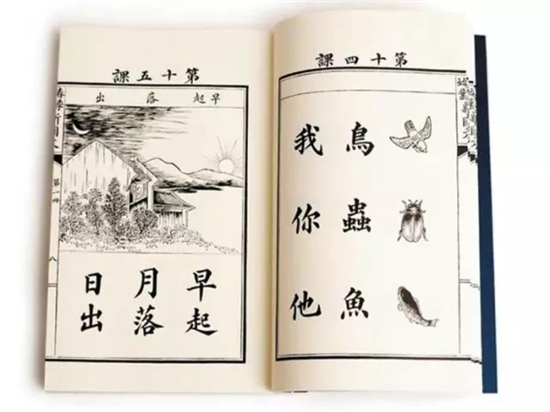 第十四課
鳥蟲魚
我你他
第十五課
早起落出
早起
月落
日出